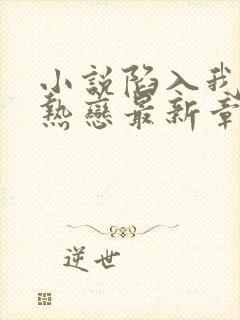 小説陷入我
熱戀最新章
逆世